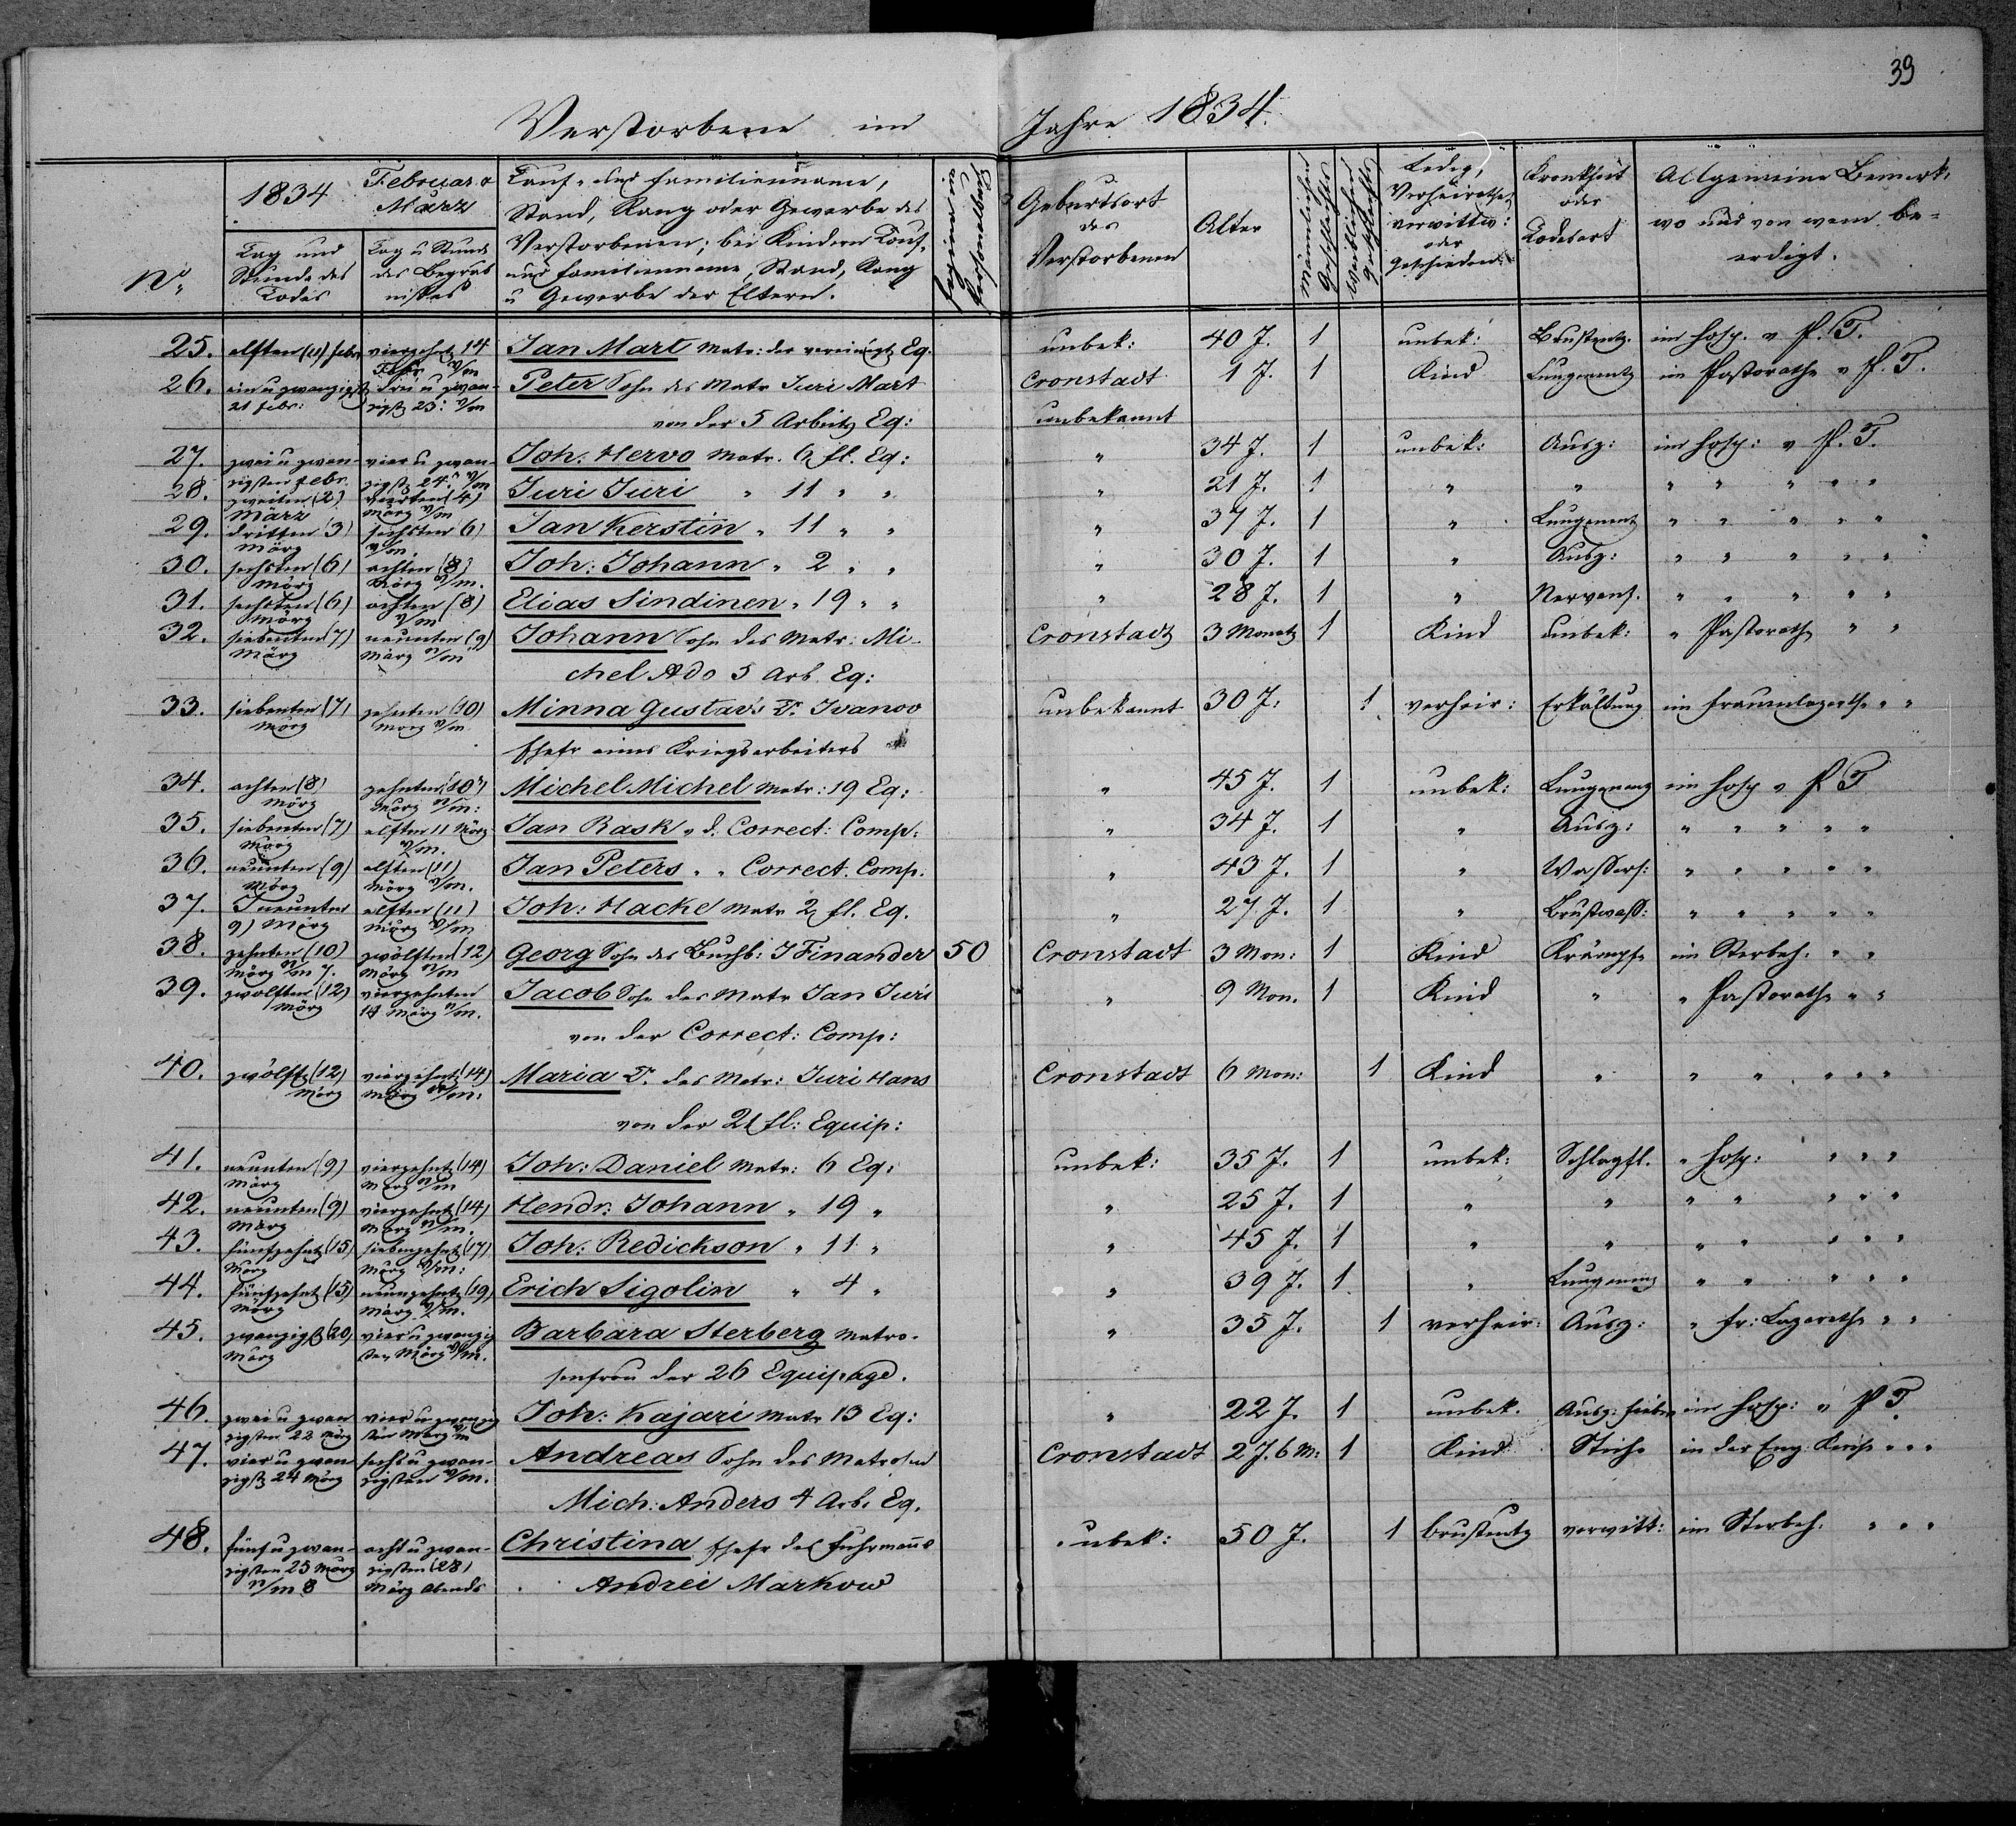 39
Verstorbene im Jahre 1834.
No.
1834
Februar & Marz
Tag und Stunde des Todes
Tag u Stunde des Begräbnisses
Tauf- und Familienname,
Stand, Rang oder Gewerbe des
Verstorbenen; bei Kindern Tauf-
und Familienname, Stand, Rang
u Gewerbe der Eltern.
Pagina im Personalbuch
Geburtsort des Verstorbenen
Alter
Männlichen Geschlechts
Weiblichen Geschlechts
Ledig, Verheirathet, verwittw: oder Geschieden.
Krankheit oder Todesart
Allgemeine Bemerk: wo und von wem be-
erdigt.
25. elften (11) febr viergehnt 14 Jan Mart Matr: der vereinigt Eq. unbek: 40 J. 1 unbek: Brustentz. im Hosp. v P. T.
Febr V/m
26. ein u zwanzigst drei u zwan- Peter Sohn des Matr Juri Mart Cronstadt 1 J. 1 Kind Lungenentz im Pastorathe v P. T.
21 febr: zigst 23: V/m von der 5 Arbeits Eq: unbekannt
27. zwei u zwan- vier u zwan- Joh: Hervo Matr. 6 fl. Eq: " 34 J. 1 unbek: Ausz: im Hosp: v P. T.
zigsten febr. zigst 24. V/m
28. zweiten (2) vierten (4) Juri Juri " 11 " " " 21 J. 1 " " " " " " "
März März V/m
29. dritten 3) sechsten 6) Jan Kerstin " 11 " " " 37 J. 1 " Lungenent " " " " "
März V/m
30. sechsten (6) achten (8) Joh: Johann " 2 " " " 30 J. 1 " Ausz: " " " " "
März März V/m.
31. sechsten (6) achten (8) Elias Sindinen " 19 " " " 28 J. 1 " Nervenf. " " " " "
März V/m
32. siebenten (7) neunten (9) Johann Sohn des Matr. Mi- Cronstadt 3 Monatz 1 Kind unbek: " Pastorathe " "
März März V/m
chel Ado 5 Arb. Eq:
33. siebenten (7) zehnten (10) Minna Gustav's T. Ivanov unbekannt 30 J. 1 verheir: Erkältung im Frauenlazarethe " "
März März V/m
Ehefr eines Kriegsarbeiters
34. achten (8) zehnten (10) Michel Michel Matr: 19 Eq: " 45 J. 1 unbek: Lungenenz im Hosp v P T
März März V/m:
35. siebenten (7) elften 11 März Jan Rask v d. Correct: Comp: " 34 J. 1 " Ausz: " " " " "
März V/m.
36. neunten (9) elften (11) Jan Peters " " Correct. Comp. " 43 J. 1 " Wassers: " " " " "
März März V/m.
37. neunten elften (11) Joh: Hacke Matr 2 fl. Eq. " 27 J. 1 " Brustwass: " " " " "
9) März März V/m
38. zehnten (10) zwölften (12) Georg Sohn des Buchb: J Finander 50 Cronstadt 3 Mon: 1 Kind Krämpfe im Sterbeh: " "
März N/m 7. März V/m
39. zwölften (12) vierzehnten Jacob Sohn des Matr Jan Juri " 9 Mon. 1 Kind " " Pastorathe " "
März 14 März V/m.
von der Correct: Comp:
40. zwölft (12) vierzehnt (14) Maria T. des Matr: Juri Hans Cronstadt 6 Mon: 1 Kind " " " " " "
März März V/m:
von der 21 fl: Equip:
41. neunten (9) vierzehnt (14) Joh: Daniel Matr: 6 Eq: unbek: 35 J. 1 unbek: Schlagfl. " Hosp: " " "
März März V/m
42. neunten (9) vierzehnt (14) Hendr: Johann " 19 " " 25 J. 1 " " " " " " "
März März V/m.
43. fünfzehnt (15) siebenzehnt (17) Joh: Redickson " 11 " " 45 J. 1 " " " " " " "
März März V/m:
44. fünfzehnt (15) neunzehnt (19) Erich Sigolin " 4 " " 39 J. 1 " Lungenenz " " " " "
März März V/m.
45. zwanzigst (20) vier u zwanzig Barbara Sterberg Matro- " 35 J. 1 verheir: Ausz: " Fr: Lazarethe " "
März sten März V/m.
senfrau der 26 Equipage.
46. zwei u zwan vier u zwanzig Joh: Kajari Matr 13 Eq: " 22 J. 1 unbek. Ausz. fieber im Hosp: v P T.
zigsten 22 März sten März V/m
47. vier u zwan sechs u zwan- Andreas Sohn des Matrosen Cronstadt 2 J. 6 M: 1 Kind Stiche in der Eng. Kirche " " "
zigst 24 März zigsten V/m.
Mich: Anders 4 Arb. Eq.
48. fünf u zwan- acht u zwan- Christina Ehefr des Fuhrmanns unbek: 50 J. 1 Brustentz verwitt: im Sterbeh. " " "
zigsten 25 März zigsten (28)
V/m 8 März Abends Andrei Markow